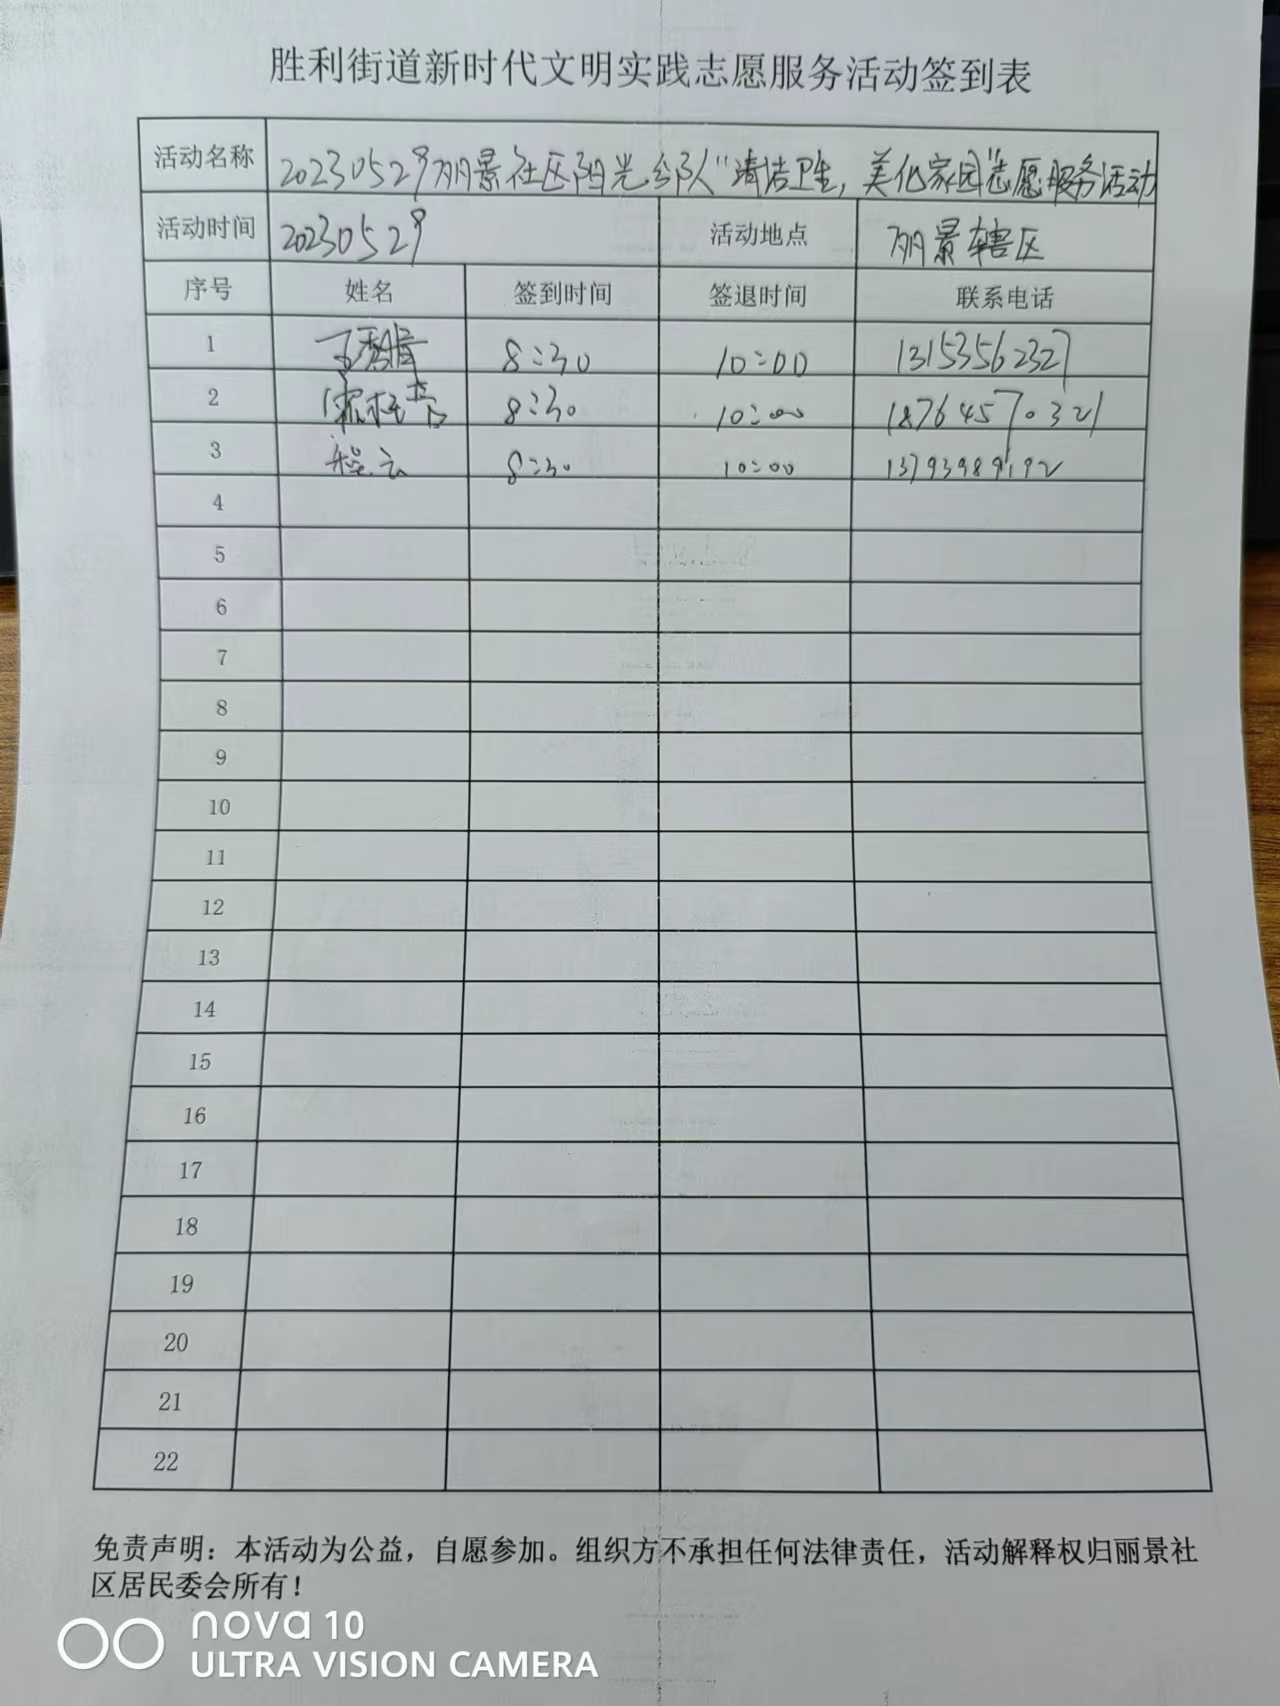 胜利街道新时代文明实践志愿服务活动签到表
活动名称 20230529丽景社区阳光分队“清洁卫生,美化家园”志愿服务活动
活动时间 20230529 活动地点 丽景辖区
序号 姓名 签到时间 签退时间 联系电话
1 8:30 10:00 13153562327
2 8:30 10:00 18764570321
3 程云 8:30 10:00 13793989192
4
5
6
7
8
9
10
11
12
13
14
15
16
17
18
19
20
21
22
免责声明：本活动为公益，自愿参加。组织方不承担任何法律责任，活动解释权归丽景社
区居民委会所有！
nova 10
ULTRA VISION CAMERA